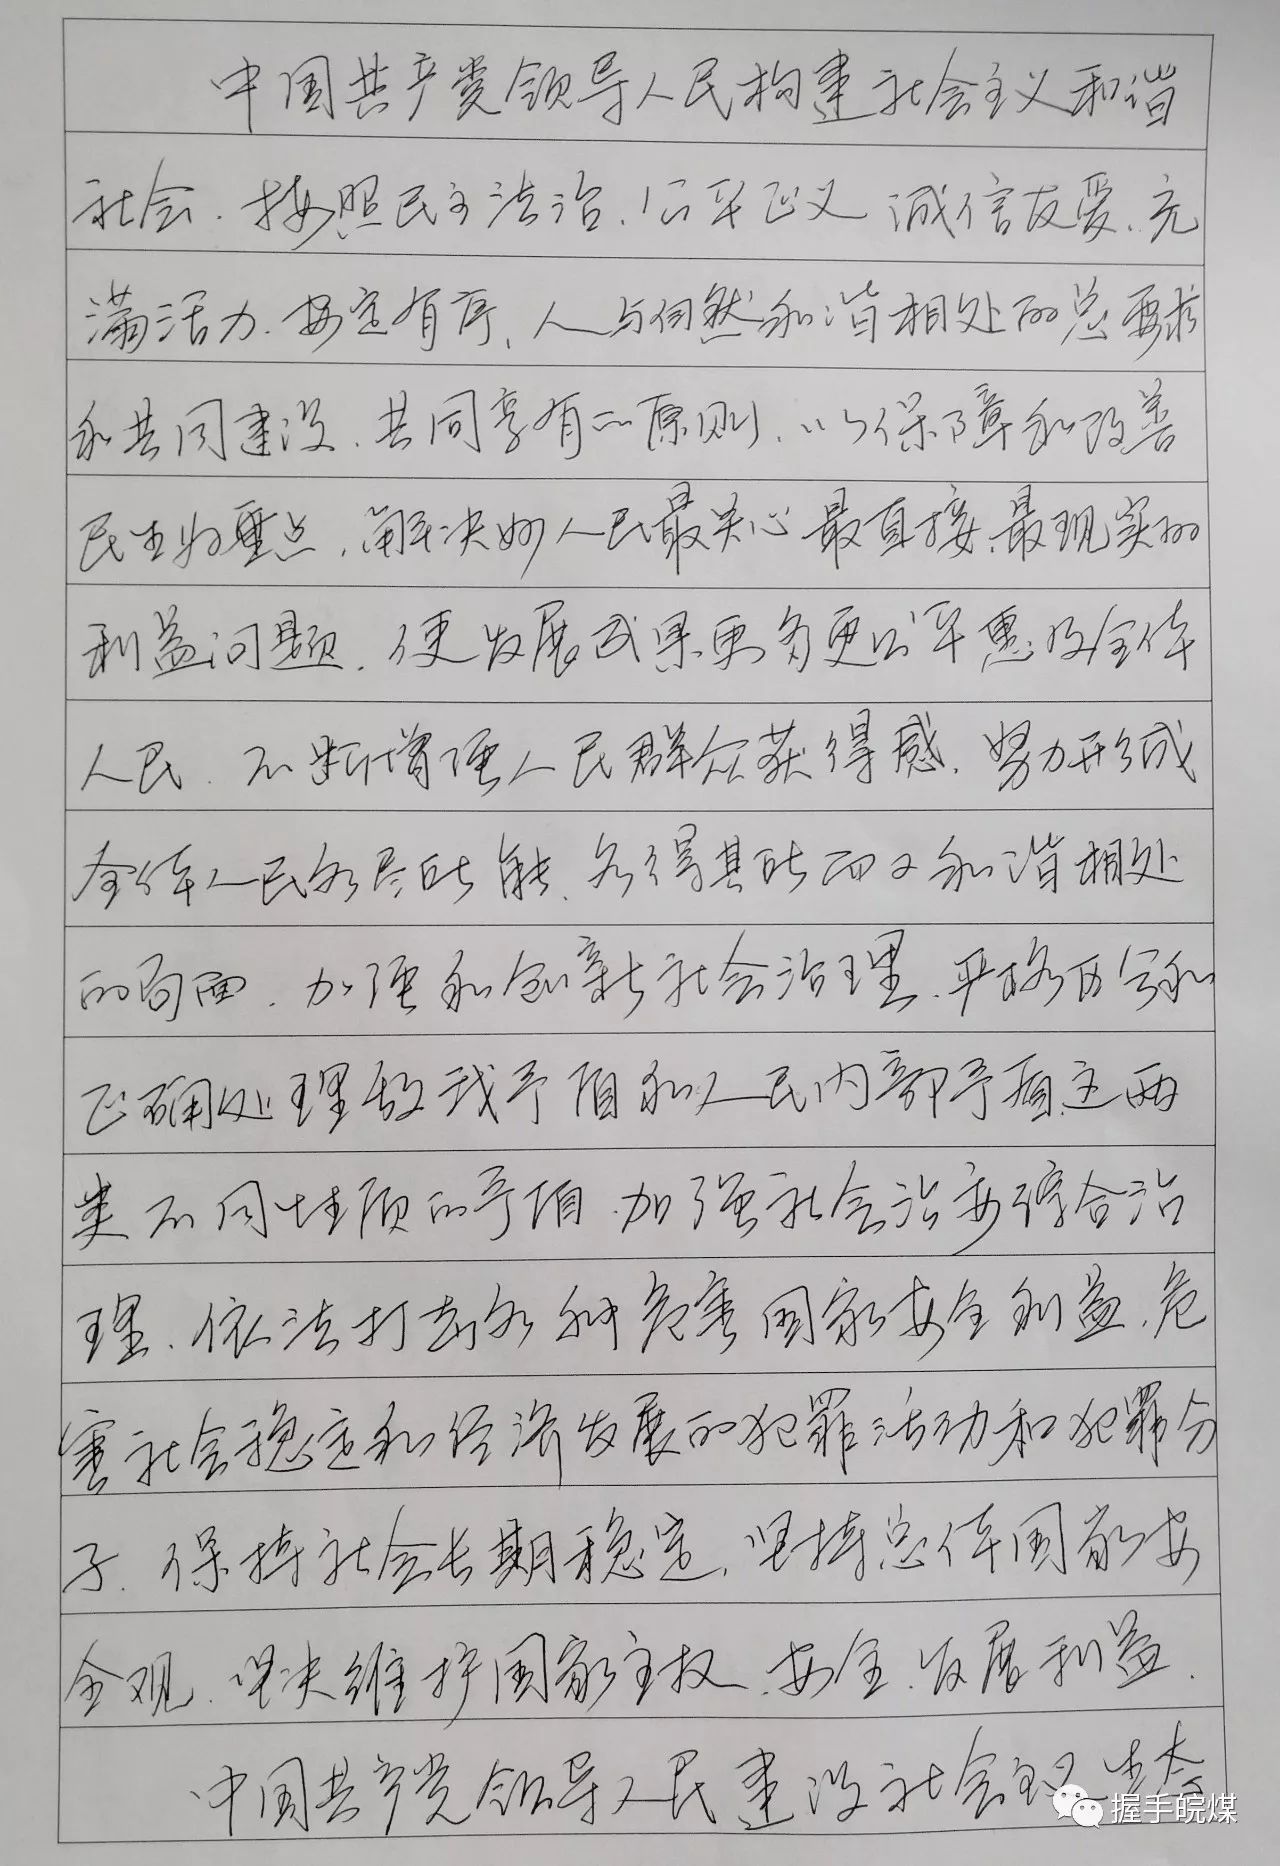 中国共产党领导人民构建社会主义和谐
社会.按照民主法治、公平正义 诚信友爱、充
满活力、安定有序、人与自然和谐相处的总要求
和共同建设、共同享有的原则、以保障和改善
民生为重点、解决好人民最关心 最直接、最现实的
利益问题、使发展成果更多更公平惠及全体
人民、不断增强人民群众获得感、努力形成
全体人民各尽所能、各得其所而又和谐相处
的局面、加强和创新社会治理、严格区分和
正确处理敌我矛盾和人民内部矛盾这两
类不同性质的矛盾.加强社会治安综合治
理、依法打击各种危害国家安全利益、危
害社会稳定和经济发展的犯罪活动和犯罪分
子、保持社会长期稳定、坚持总体国家安
全观、坚决维护国家主权、安全、发展利益.
中国共产党领导人民建设社会主义生态
握手皖煤